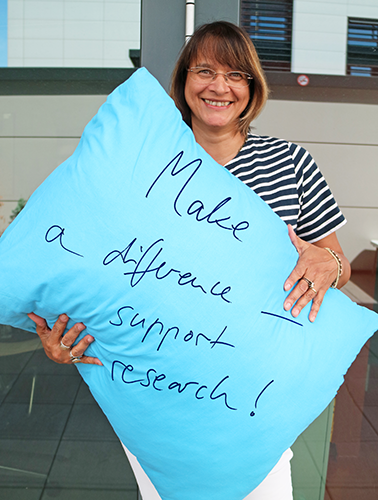 Make
a difference —
support
research!